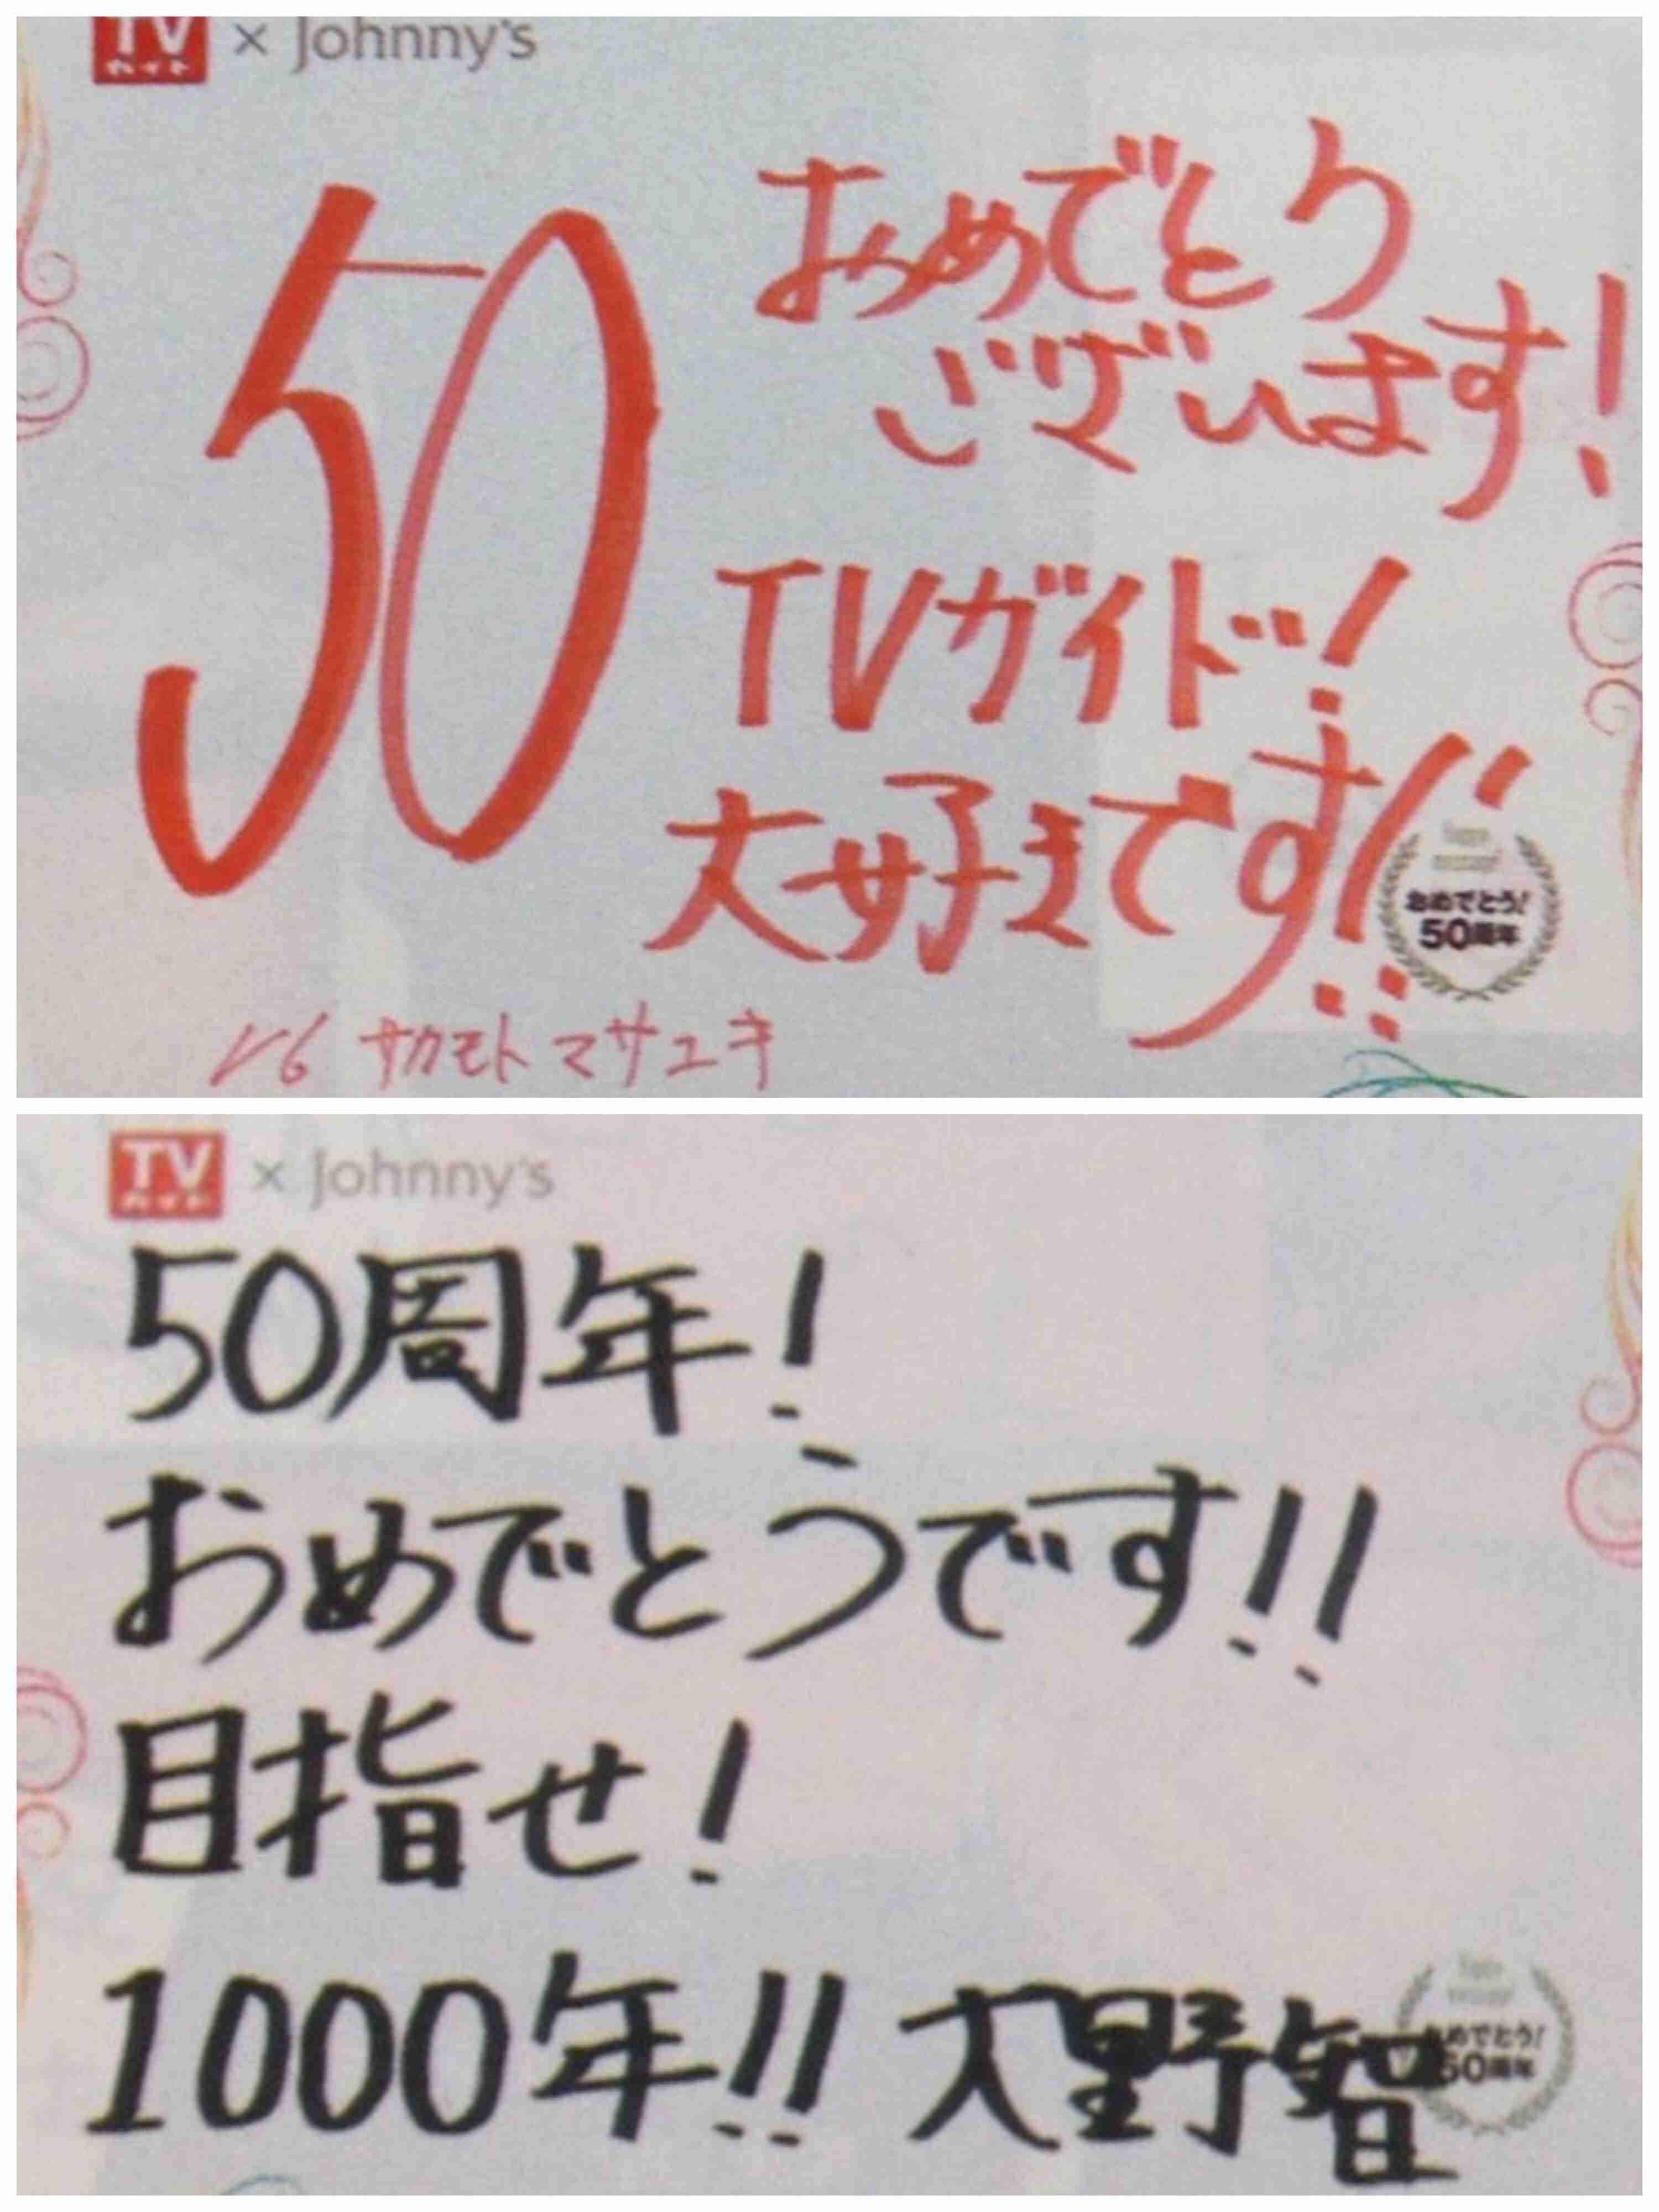 TVガイド × Johnny's
50
おめでとう
ございます!
TVガイド!
大好きです!!
おめでとう!
50周年
V6 サカモトマサユキ
TVガイド × Johnny's
50周年!
おめでとうです!!
目指せ!
1000年!! 大野智
おめでとう!
50周年